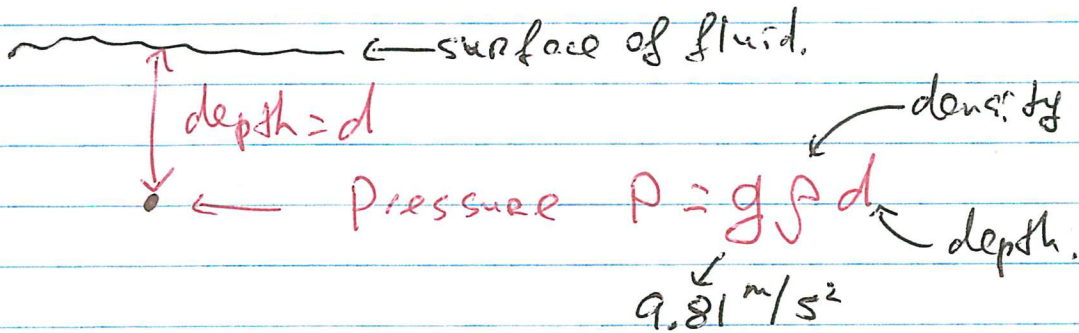 ←surface of fluid.
depth = d
density
← Pressure P = gρd
depth.
9.81 m/s²